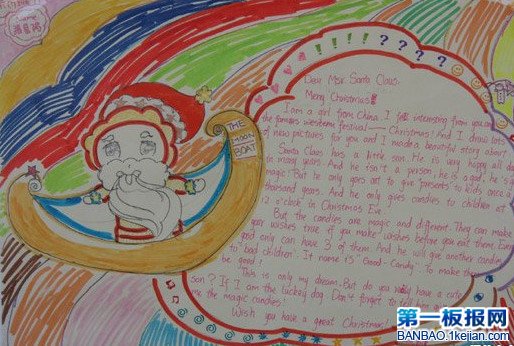 Dear Mr. Santa Claus:
Merry Christmas!
I am a girl from China. I felt interesting from you and
the famous western festival——Christmas! And I draw lots
of new pictures for you and I made a beautiful story about
Santa Claus has a little son. He is very happy all day
in many years. And he isn't a person, he is a god, he is
magic! But he only goes out to give presents to kids once a
thousand years. And he only gives candies to children at
12 o'clock in Christmas Eve.
But the candies are magic and different. They can make
your wishes true if you make wishes before you eat them. Every
and only can have 3 of them. And he will give another candies
to "bad children". It name is "Good-Candy". To make them
be good!
This is only my dream. But do you have a cute
son? If I am the luckey dog. Don't forget to
me the magic candies.
Wish you have a great Christmas
THE
MOON
BOAT
! ! ! ! ? ? ? ?
第一板报网
BANBAO.1kejian.com